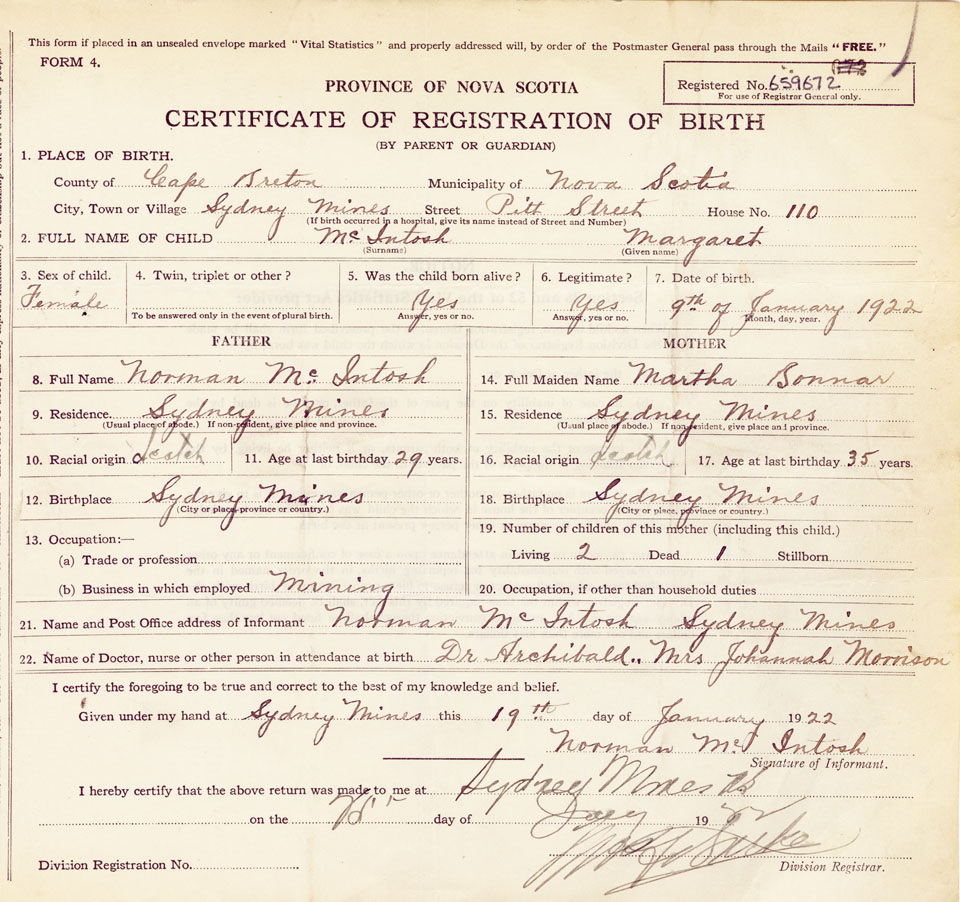 This form if placed in an unsealed envelope marked "Vital Statistics" and properly addressed will, by order of the Postmaster General pass through the Mails "FREE."
FORM 4.
PROVINCE OF NOVA SCOTIA
Registered No. 659672
For use of Registrar General only.
CERTIFICATE OF REGISTRATION OF BIRTH
(BY PARENT OR GUARDIAN)
1. PLACE OF BIRTH.
County of Cape Breton Municipality of Nova Scotia
City, Town or Village Sydney Mines Street Pitt Street House No. 110
(If birth occurred in a hospital, give its name instead of Street and Number)
2. FULL NAME OF CHILD Mc Intosh Margaret
(Surname) (Given name)
3. Sex of child. 4. Twin, triplet or other? 5. Was the child born alive? 6. Legitimate? 7. Date of birth.
Female Yes Yes 9th of January 1922
To be answered only in the event of plural birth. Answer, yes or no. Answer, yes or no. Month, day, year.
FATHER MOTHER
8. Full Name Norman Mc Intosh 14. Full Maiden Name Martha Bonnar
9. Residence. Sydney Mines 15. Residence Sydney Mines
(Usual place of abode.) If non-resident, give place and province. (Usual place of abode.) If non-resident, give place and province.
10. Racial origin Scotch 11. Age at last birthday 29 years. 16. Racial origin Scotch 17. Age at last birthday 35 years.
12. Birthplace Sydney Mines 18. Birthplace Sydney Mines
(City or place, province or country.) (City or place, province or country.)
13. Occupation:— 19. Number of children of this mother (including this child.)
(a) Trade or profession Living 2 Dead 1 Stillborn
(b) Business in which employed Mining 20. Occupation, if other than household duties
21. Name and Post Office address of Informant Norman Mc Intosh Sydney Mines
22. Name of Doctor, nurse or other person in attendance at birth Dr Archibald., Mrs Johannah Morrison
I certify the foregoing to be true and correct to the best of my knowledge and belief.
Given under my hand at Sydney Mines this 19th day of January 1922
Norman Mc Intosh
Signature of Informant.
I hereby certify that the above return was made to me at Sydney Mines
on the day of 19 22
Division Registration No. Division Registrar.